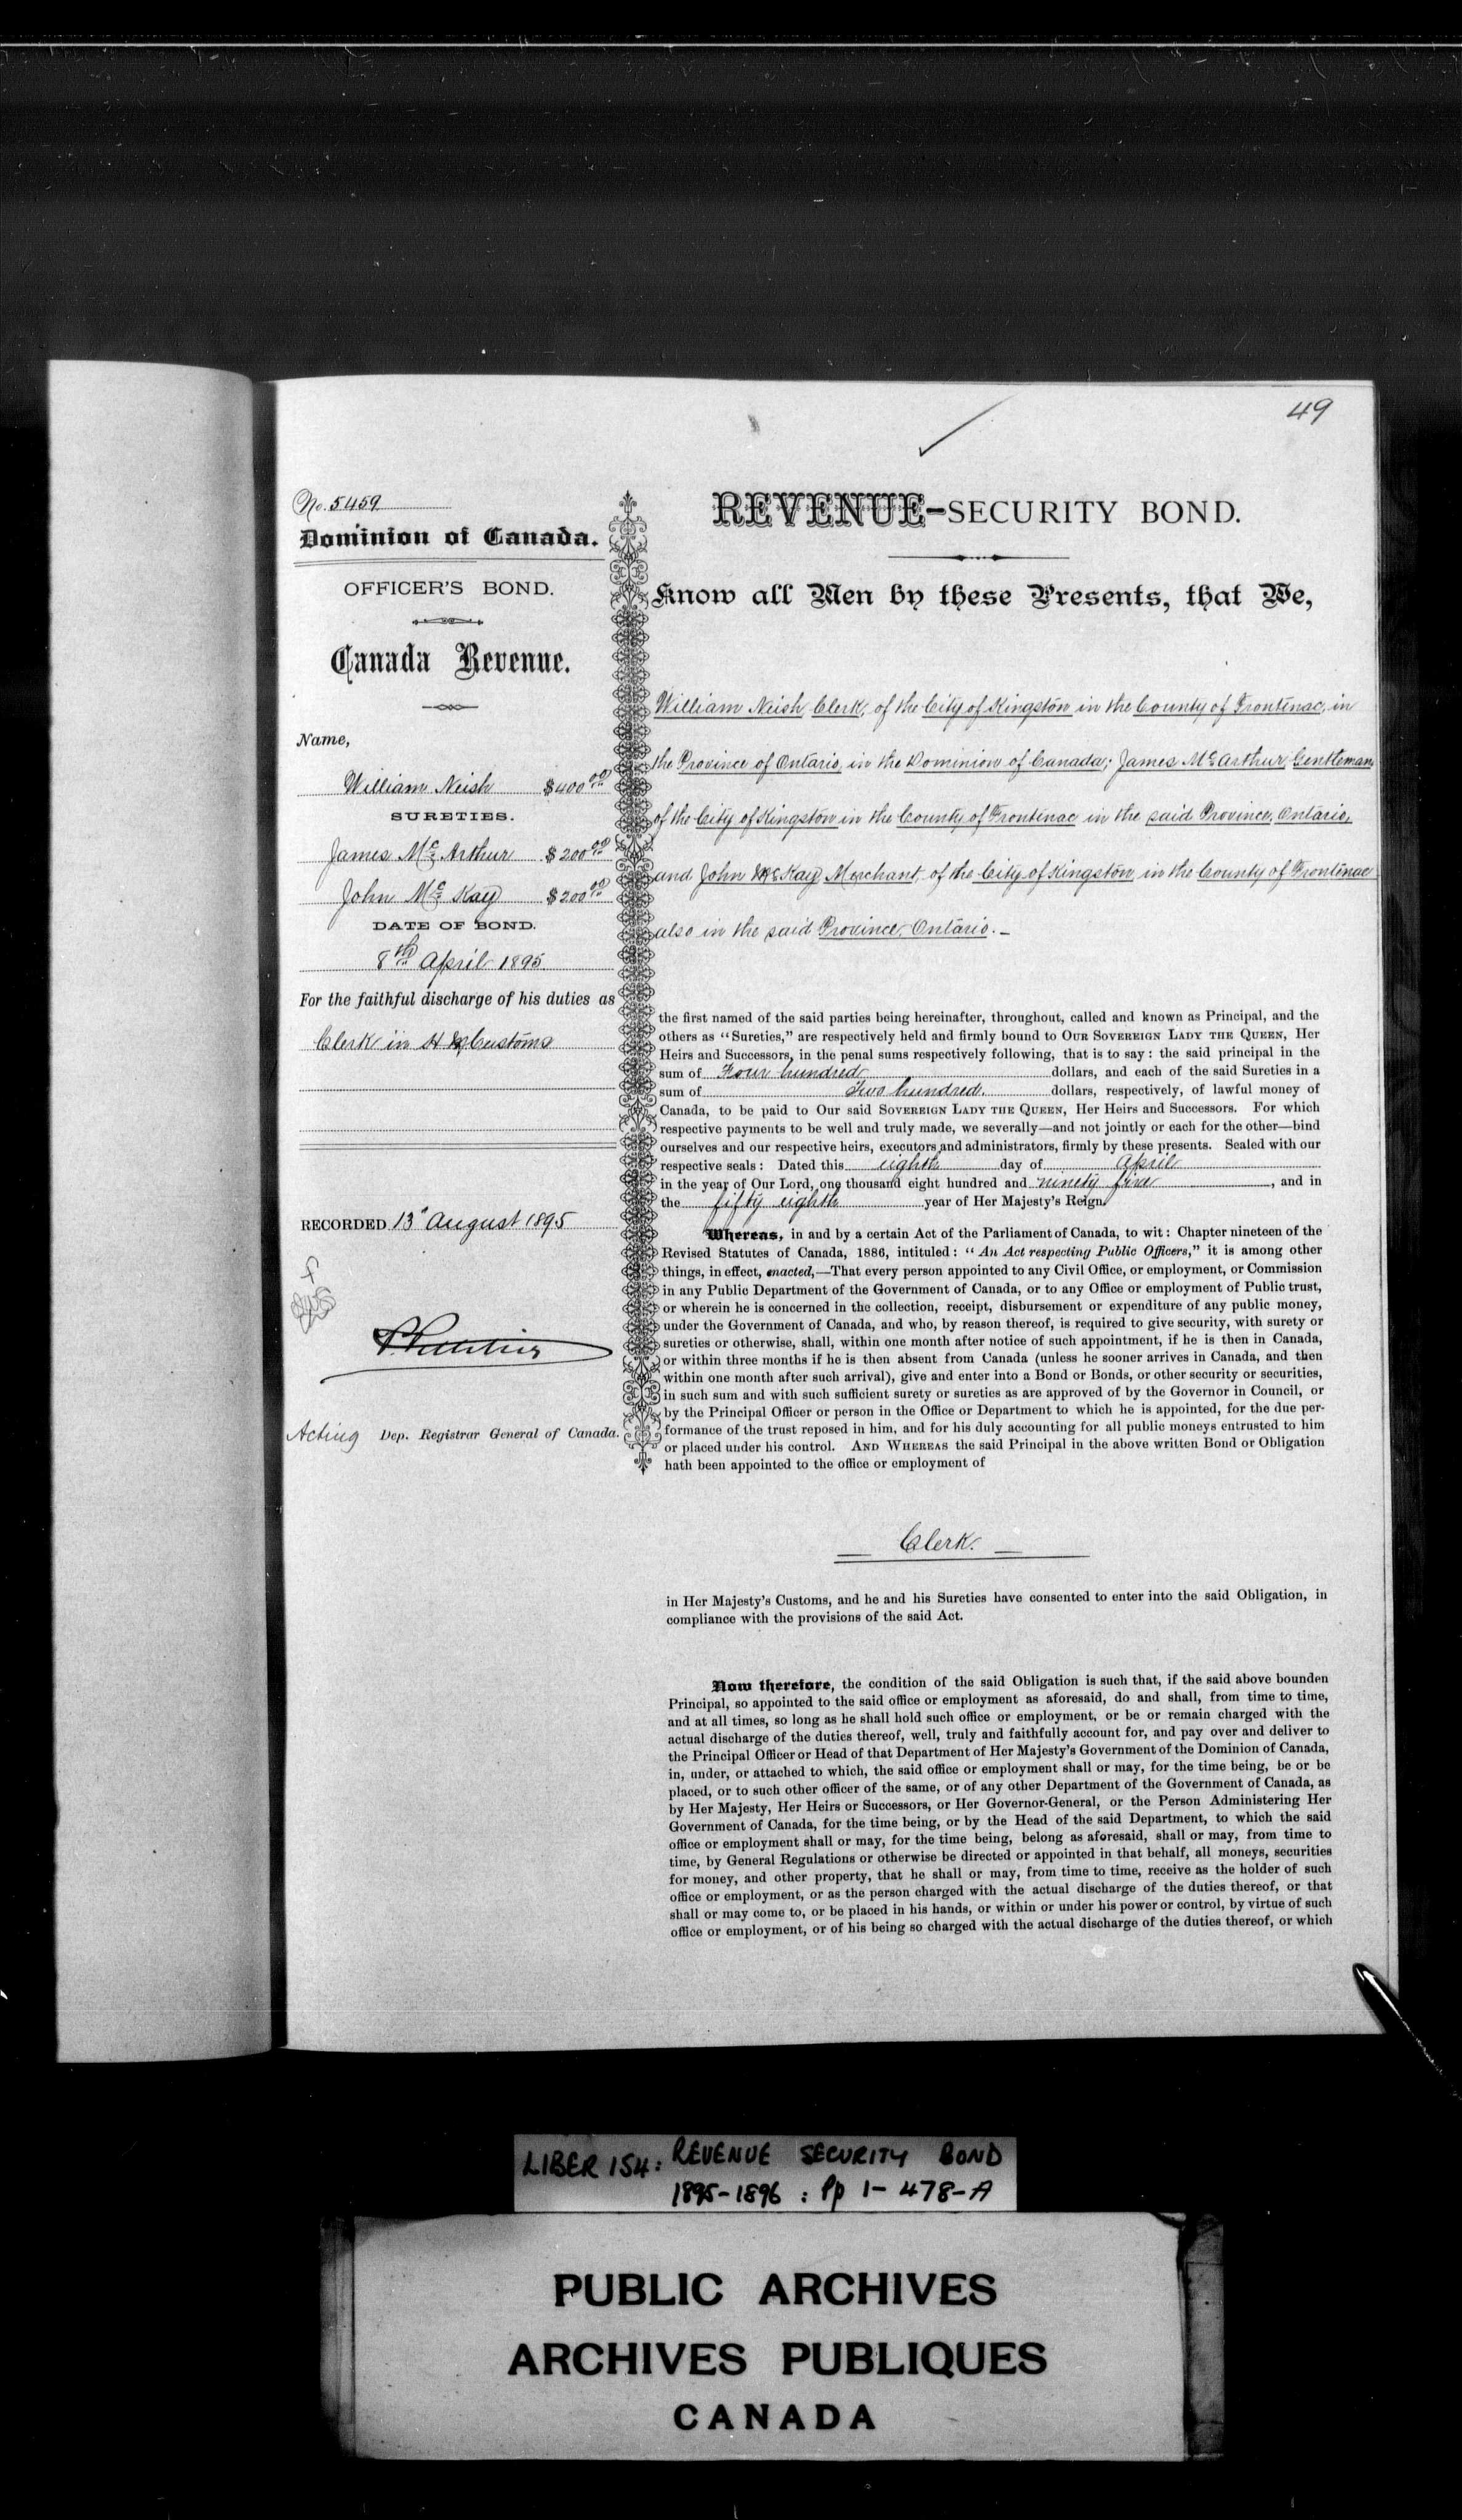 49
No. 5459
Dominion of Canada.
OFFICER'S BOND.
Canada Revenue.
Name,
William Neish $400 00
SURETIES.
James Mc Arthur $200 00
John Mc Kay $200 00
DATE OF BOND.
8th April 1895
For the faithful discharge of his duties as
Clerk in H M Customs
RECORDED 13" August 1895
Acting Dep. Registrar General of Canada.
REVENUE-SECURITY BOND.
Know all Men by these Presents, that We,
William Neish, Clerk, of the City of Kingston in the County of Frontenac, in
the Province of Ontario, in the Dominion of Canada; James McArthur, Gentleman
of the City of Kingston in the County of Frontenac in the said Province, Ontario,
and John McKay, Merchant, of the City of Kingston, in the County of Frontenac
also in the said Province, Ontario. –
the first named of the said parties being hereinafter, throughout, called and known as Principal, and the
others as "Sureties," are respectively held and firmly bound to OUR SOVEREIGN LADY THE QUEEN, Her
Heirs and Successors, in the penal sums respectively following, that is to say: the said principal in the
sum of Four hundred dollars, and each of the said Sureties in a
sum of Two hundred. dollars, respectively, of lawful money of
Canada, to be paid to Our said SOVEREIGN LADY THE QUEEN, Her Heirs and Successors. For which
respective payments to be well and truly made, we severally—and not jointly or each for the other—bind
ourselves and our respective heirs, executors and administrators, firmly by these presents. Sealed with our
respective seals: Dated this eighth day of April
in the year of Our Lord, one thousand eight hundred and ninety five, and in
the fifty eighth year of Her Majesty's Reign.
Whereas, in and by a certain Act of the Parliament of Canada, to wit: Chapter nineteen of the
Revised Statutes of Canada, 1886, intituled: "An Act respecting Public Officers," it is among other
things, in effect, enacted,—That every person appointed to any Civil Office, or employment, or Commission
in any Public Department of the Government of Canada, or to any Office or employment of Public trust,
or wherein he is concerned in the collection, receipt, disbursement or expenditure of any public money,
under the Government of Canada, and who, by reason thereof, is required to give security, with surety or
sureties or otherwise, shall, within one month after notice of such appointment, if he is then in Canada,
or within three months if he is then absent from Canada (unless he sooner arrives in Canada, and then
within one month after such arrival), give and enter into a Bond or Bonds, or other security or securities,
in such sum and with such sufficient surety or sureties as are approved of by the Governor in Council, or
by the Principal Officer or person in the Office or Department to which he is appointed, for the due per-
formance of the trust reposed in him, and for his duly accounting for all public moneys entrusted to him
or placed under his control. AND WHEREAS the said Principal in the above written Bond or Obligation
hath been appointed to the office or employment of
Clerk.
in Her Majesty's Customs, and he and his Sureties have consented to enter into the said Obligation, in
compliance with the provisions of the said Act.
Now therefore, the condition of the said Obligation is such that, if the said above bounden
Principal, so appointed to the said office or employment as aforesaid, do and shall, from time to time,
and at all times, so long as he shall hold such office or employment, or be or remain charged with the
actual discharge of the duties thereof, well, truly and faithfully account for, and pay over and deliver to
the Principal Officer or Head of that Department of Her Majesty's Government of the Dominion of Canada,
in, under, or attached to which, the said office or employment shall or may, for the time being, be or be
placed, or to such other officer of the same, or of any other Department of the Government of Canada, as
by Her Majesty, Her Heirs or Successors, or Her Governor-General, or the Person Administering Her
Government of Canada, for the time being, or by the Head of the said Department, to which the said
office or employment shall or may, for the time being, belong as aforesaid, shall or may, from time to
time, by General Regulations or otherwise be directed or appointed in that behalf, all moneys, securities
for money, and other property, that he shall or may, from time to time, receive as the holder of such
office or employment, or as the person charged with the actual discharge of the duties thereof, or that
shall or may come to, or be placed in his hands, or within or under his power or control, by virtue of such
office or employment, or of his being so charged with the actual discharge of the duties thereof, or which
LIBER 154: REVENUE SECURITY BOND
1895-1896 : Pp 1-478-A
PUBLIC ARCHIVES
ARCHIVES PUBLIQUES
CANADA